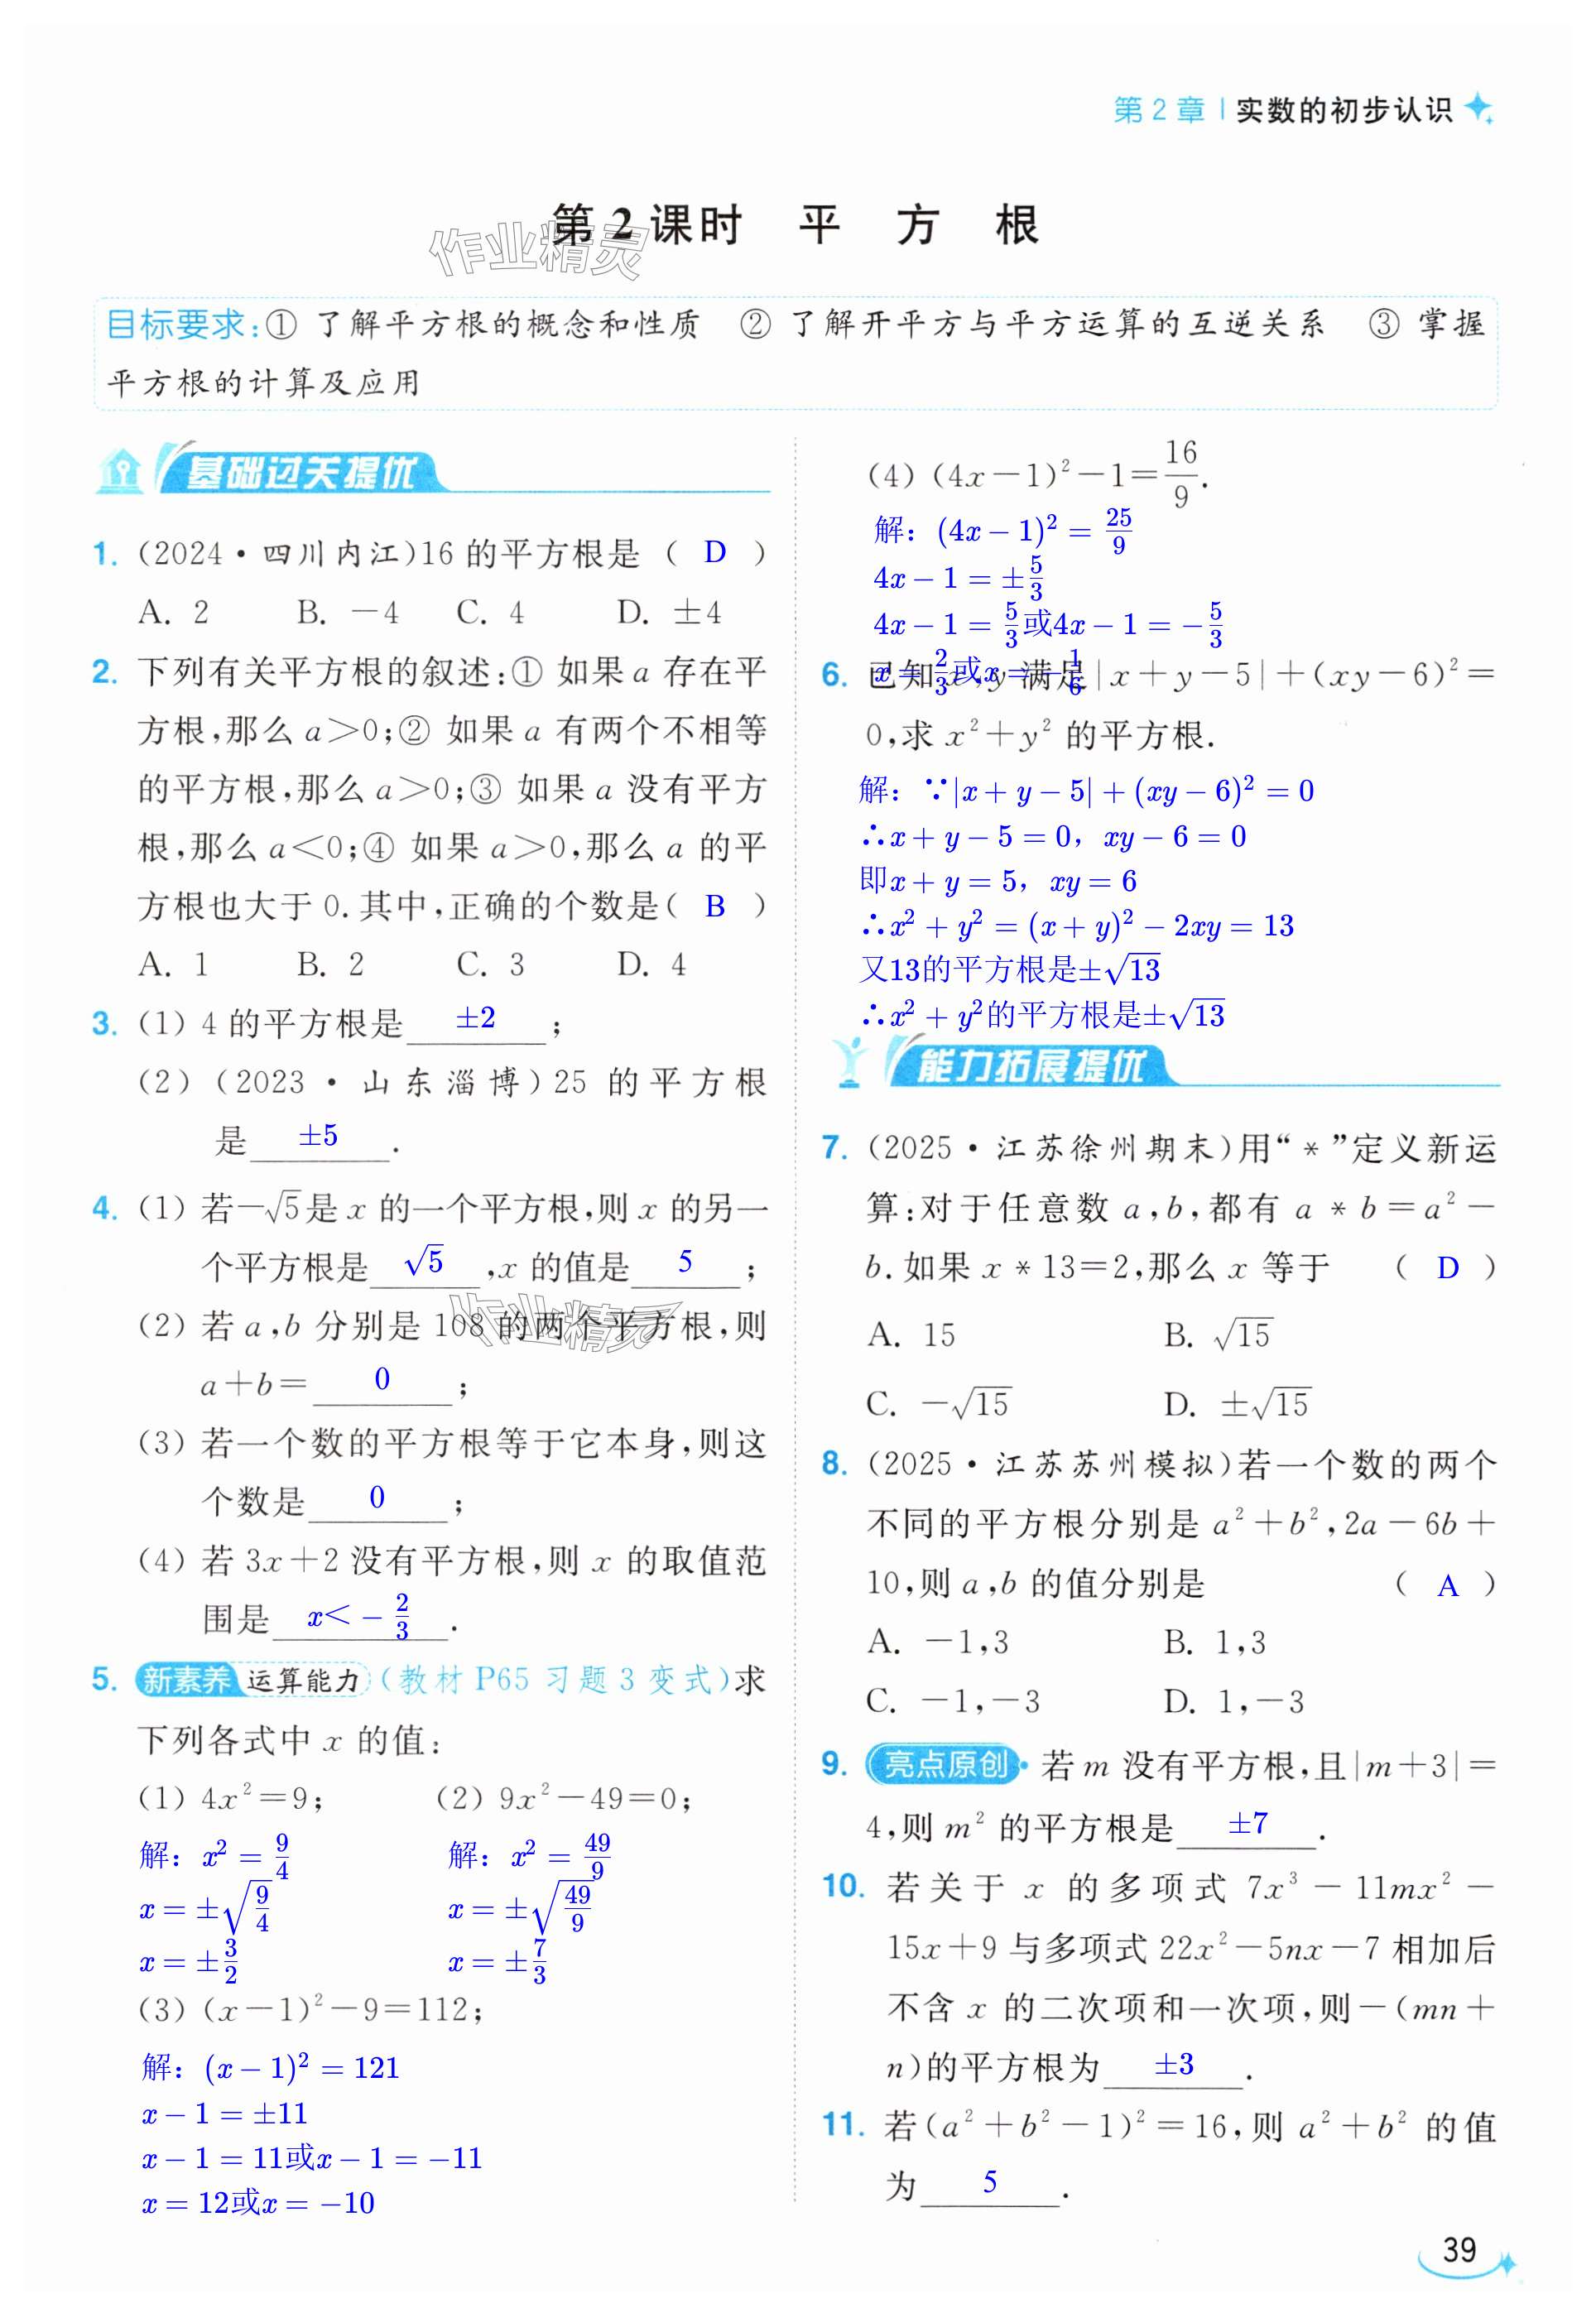 第2章 | 实数的初步认识
第2课时 平 方 根
作业精灵
目标要求:① 了解平方根的概念和性质 ② 了解开平方与平方运算的互逆关系 ③ 掌握
平方根的计算及应用
基础过关提优
1. (2024·四川内江)16的平方根是 ( D )
A. 2 B. －4 C. 4 D. ±4
2. 下列有关平方根的叙述:① 如果a存在平
方根,那么a＞0;② 如果a有两个不相等
的平方根,那么a＞0;③ 如果a没有平方
根,那么a＜0;④ 如果a＞0,那么a的平
方根也大于0.其中,正确的个数是( B )
A. 1 B. 2 C. 3 D. 4
3. (1) 4的平方根是 ±2 ;
(2) (2023·山东淄博)25的平方根
是 ±5 .
4. (1) 若－√5是x的一个平方根,则x的另一
个平方根是 √5 ,x的值是 5 ;
(2) 若a,b分别是108的两个平方根,则
作业精灵
a＋b＝ 0 ;
(3) 若一个数的平方根等于它本身,则这
个数是 0 ;
(4) 若3x＋2没有平方根,则x的取值范
围是 x＜－2/3 .
5. 新素养 运算能力 (教材P65习题3变式)求
下列各式中x的值:
(1) 4x²＝9; (2) 9x²－49＝0;
解：x²＝9/4 解：x²＝49/9
x＝±√(9/4) x＝±√(49/9)
x＝±3/2 x＝±7/3
(3) (x－1)²－9＝112;
解：(x－1)²＝121
x－1＝±11
x－1＝11或x－1＝－11
x＝12或x＝－10
(4) (4x－1)²－1＝16/9.
解：(4x－1)²＝25/9
4x－1＝±5/3
4x－1＝5/3或4x－1＝－5/3
x＝2/3或x＝－1/6
6. 已知x,y满足|x＋y－5|＋(xy－6)²＝
0,求x²＋y²的平方根.
解：∵|x＋y－5|＋(xy－6)²＝0
∴x＋y－5＝0，xy－6＝0
即x＋y＝5，xy＝6
∴x²＋y²＝(x＋y)²－2xy＝13
又13的平方根是±√13
∴x²＋y²的平方根是±√13
能力拓展提优
7. (2025·江苏徐州期末)用“*”定义新运
算:对于任意数a,b,都有a*b＝a²－
b.如果x*13＝2,那么x等于 ( D )
A. 15 B. √15
C. －√15 D. ±√15
8. (2025·江苏苏州模拟)若一个数的两个
不同的平方根分别是a²＋b²,2a－6b＋
10,则a,b的值分别是 ( A )
A. －1,3 B. 1,3
C. －1,－3 D. 1,－3
9. 亮点原创·若m没有平方根,且|m＋3|＝
4,则m²的平方根是 ±7 .
10. 若关于x的多项式7x³－11mx²－
15x＋9与多项式22x²－5nx－7相加后
不含x的二次项和一次项,则－(mn＋
n)的平方根为 ±3 .
11. 若(a²＋b²－1)²＝16,则a²＋b²的值
为 5 .
39